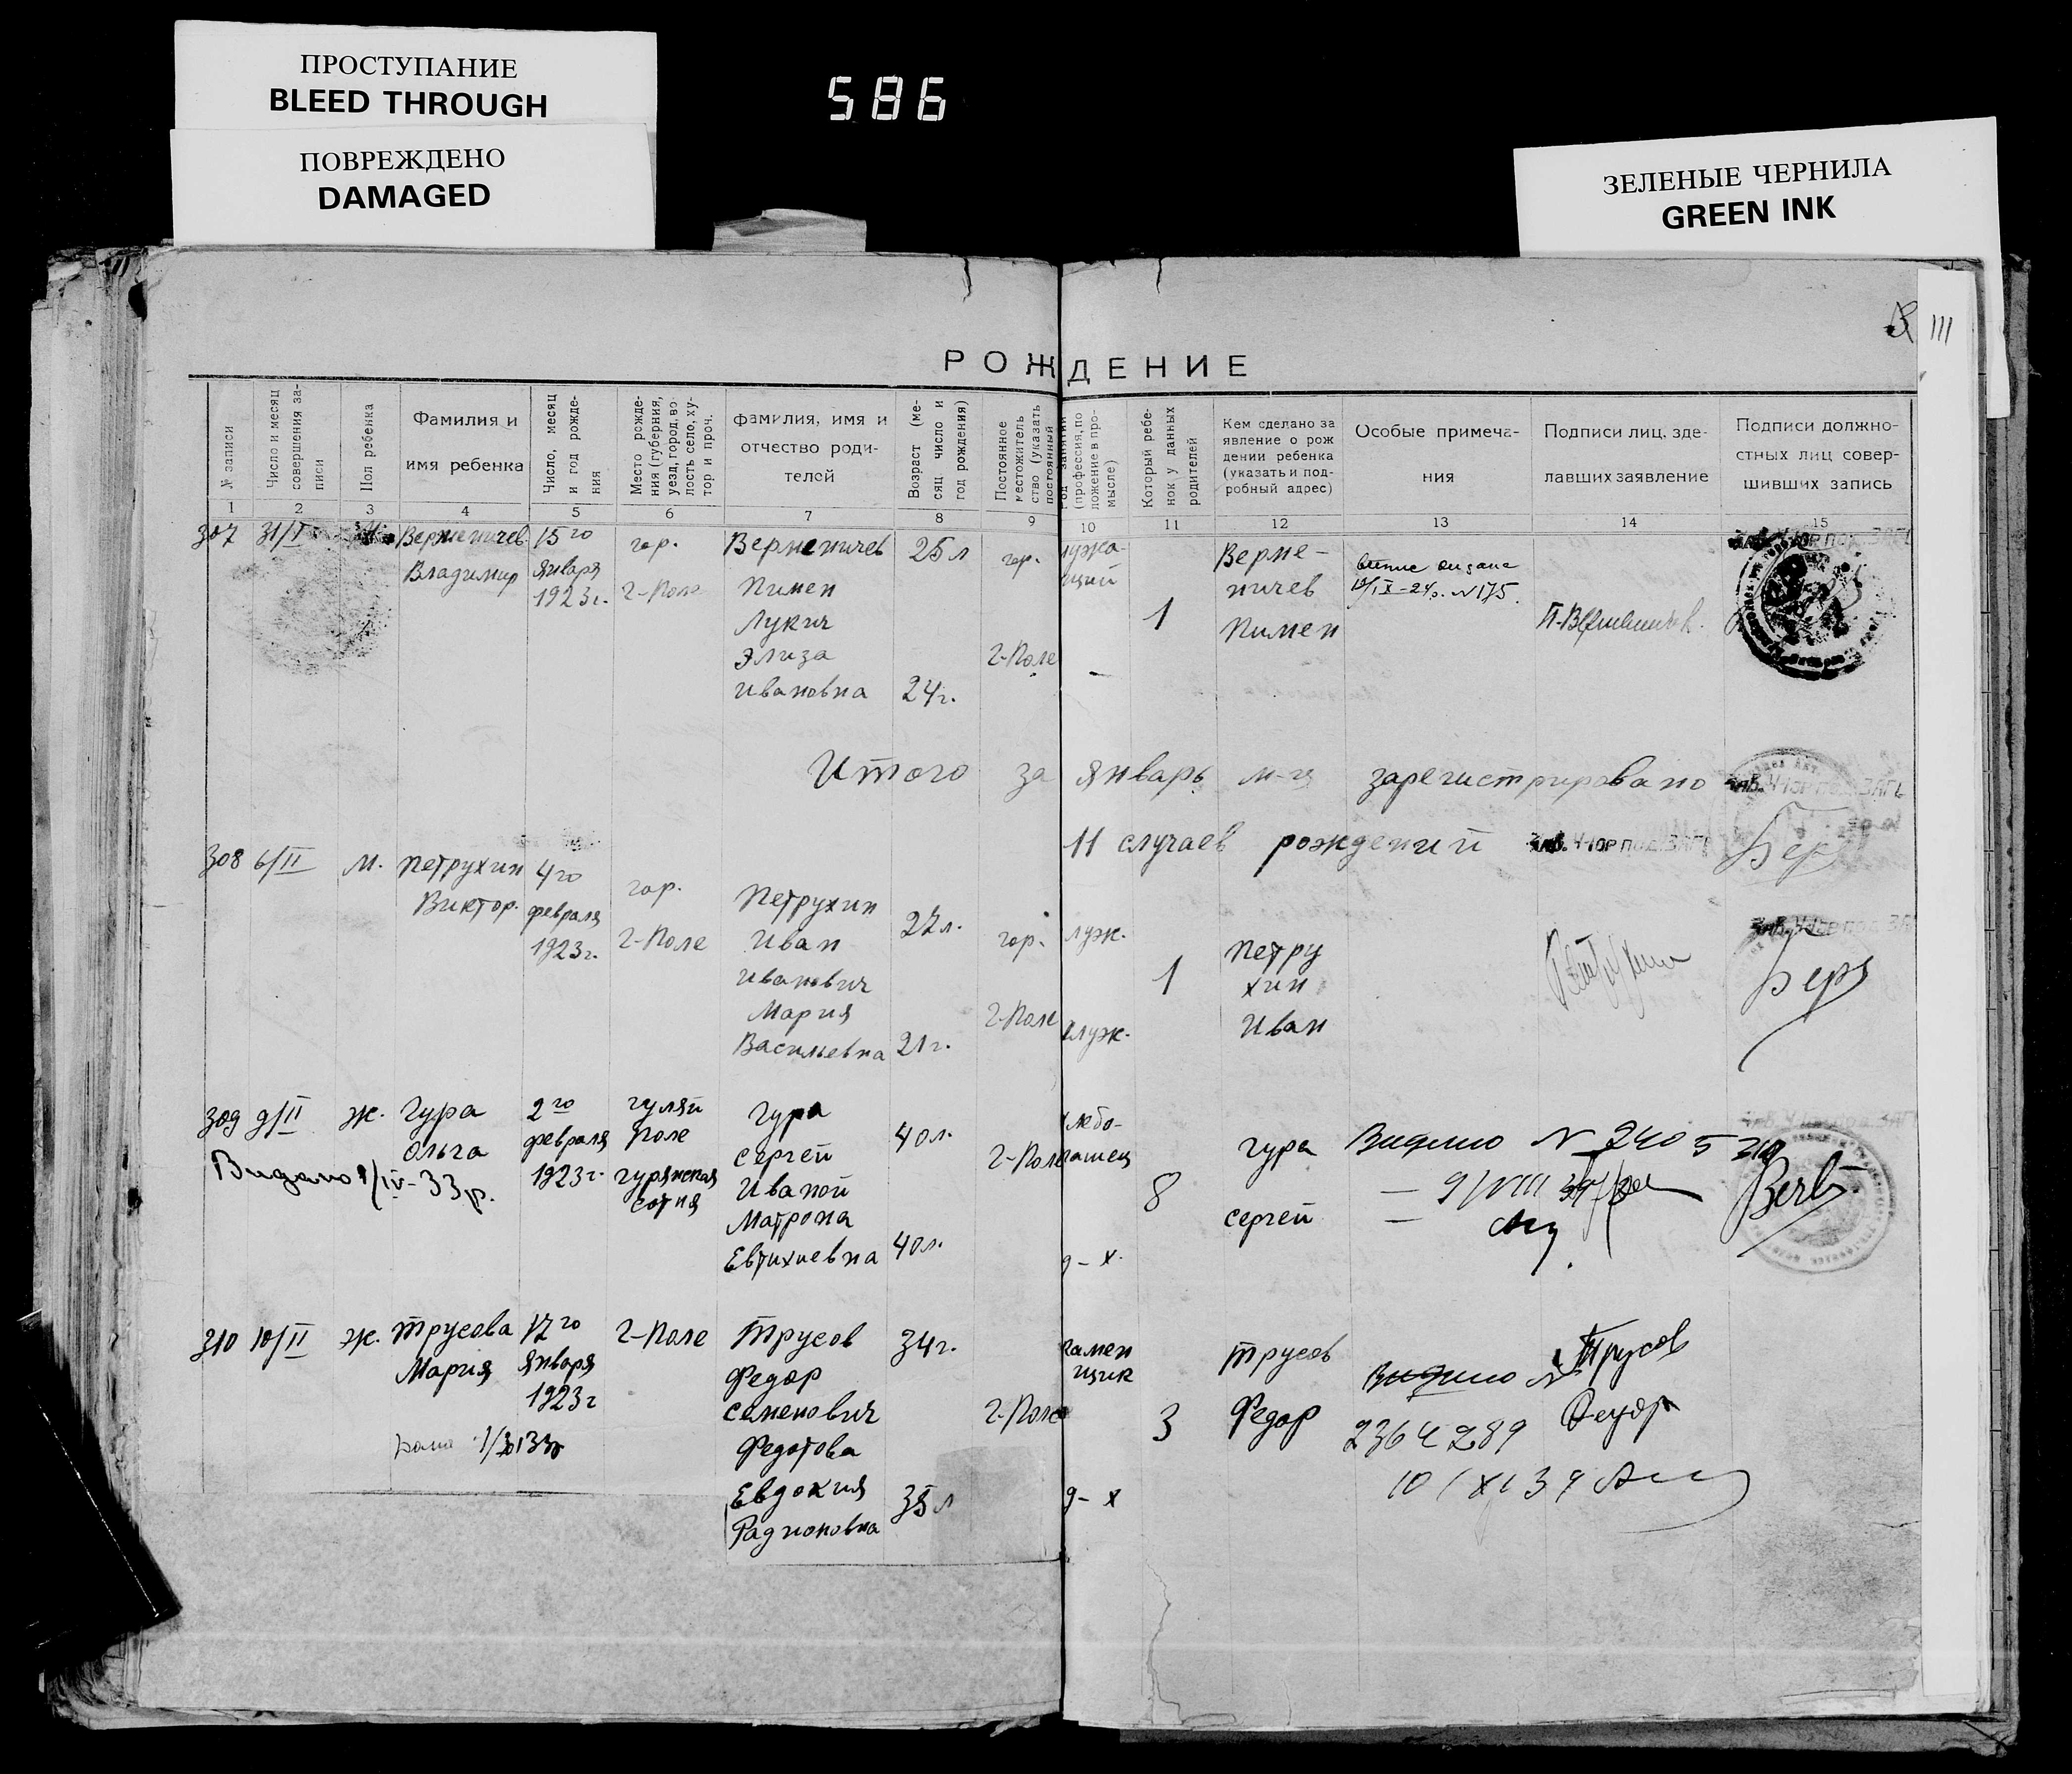 ПРОСТУПАНИЕ
BLEED THROUGH
ПОВРЕЖДЕНО
DAMAGED
586
ЗЕЛЕНЫЕ ЧЕРНИЛА
GREEN INK
111
РОЖДЕНИЕ
№ записи
Число и месяц
совершения за-
писи
Пол ребенка
Фамилия и
имя ребенка
Число, месяц
и год рожде-
ния
Место рожде-
ния (губерния,
уезд, город, во-
лость село, ху-
тор и проч.
фамилия, имя и
отчество роди-
телей
Возраст (ме-
сяц число и
год рождения)
Постоянное
местожитель
ство (указать
постоянный
Род занятий
(профессия, по
ложение в про-
мысле)
Который ребе-
нок у данных
родителей
Кем сделано за
явление о рож
дении ребенка
(указать и под-
робный адрес)
Особые примеча-
ния
Подписи лиц, зде-
лавших заявление
Подписи должно-
стных лиц совер-
шивших запись
1 2 3 4 5 6 7 8 9 10 11 12 13 14 15
307 31/I
Верменичев
Владимир
15го
января
1923г.
гор.
Г-Поле
Верменичев
Пимен
Лукич
Элиза
Ивановна
25 л
24г.
гор.
Г-Поле
лужа-
щий
—
1
Верме-
ничев
Пимен
N175.
Итого за январь м-ц зарегистрировано
11 случаев рождений
308 6/II м.
Петрухин
Виктор.
4го
февраля
1923г.
гор.
Г-Поле
Петрухин
Иван
Иванович
Мария
Васильевна
27л.
21г.
гор.
Г-Поле
луж.
служ.
1
Петру
хин
Иван
Бер
309 9/II ж.
Гура
Ольга
2го
февраля
1923г.
Гуляй
Поле
гурянская
сотня
Гура
Сергей
Иваной
Матрона
Евтихиевна
40л.
40л.
Г-Поле
хлебо-
пашец
д-х.
8
Гура
Сергей
Видано N 2405
9/VIII
Видано 9/IV-33р.
310 10/II ж.
Трусова
Мария
17го
января
1923г
Г-Поле
Трусов
Федор
Семенович
Федотова
Евдокия
Радионовна
34г.
35л
Г-Поле
камен
щик
д-х
3
Трусов
Федор
Видано N
Трусов
Федор